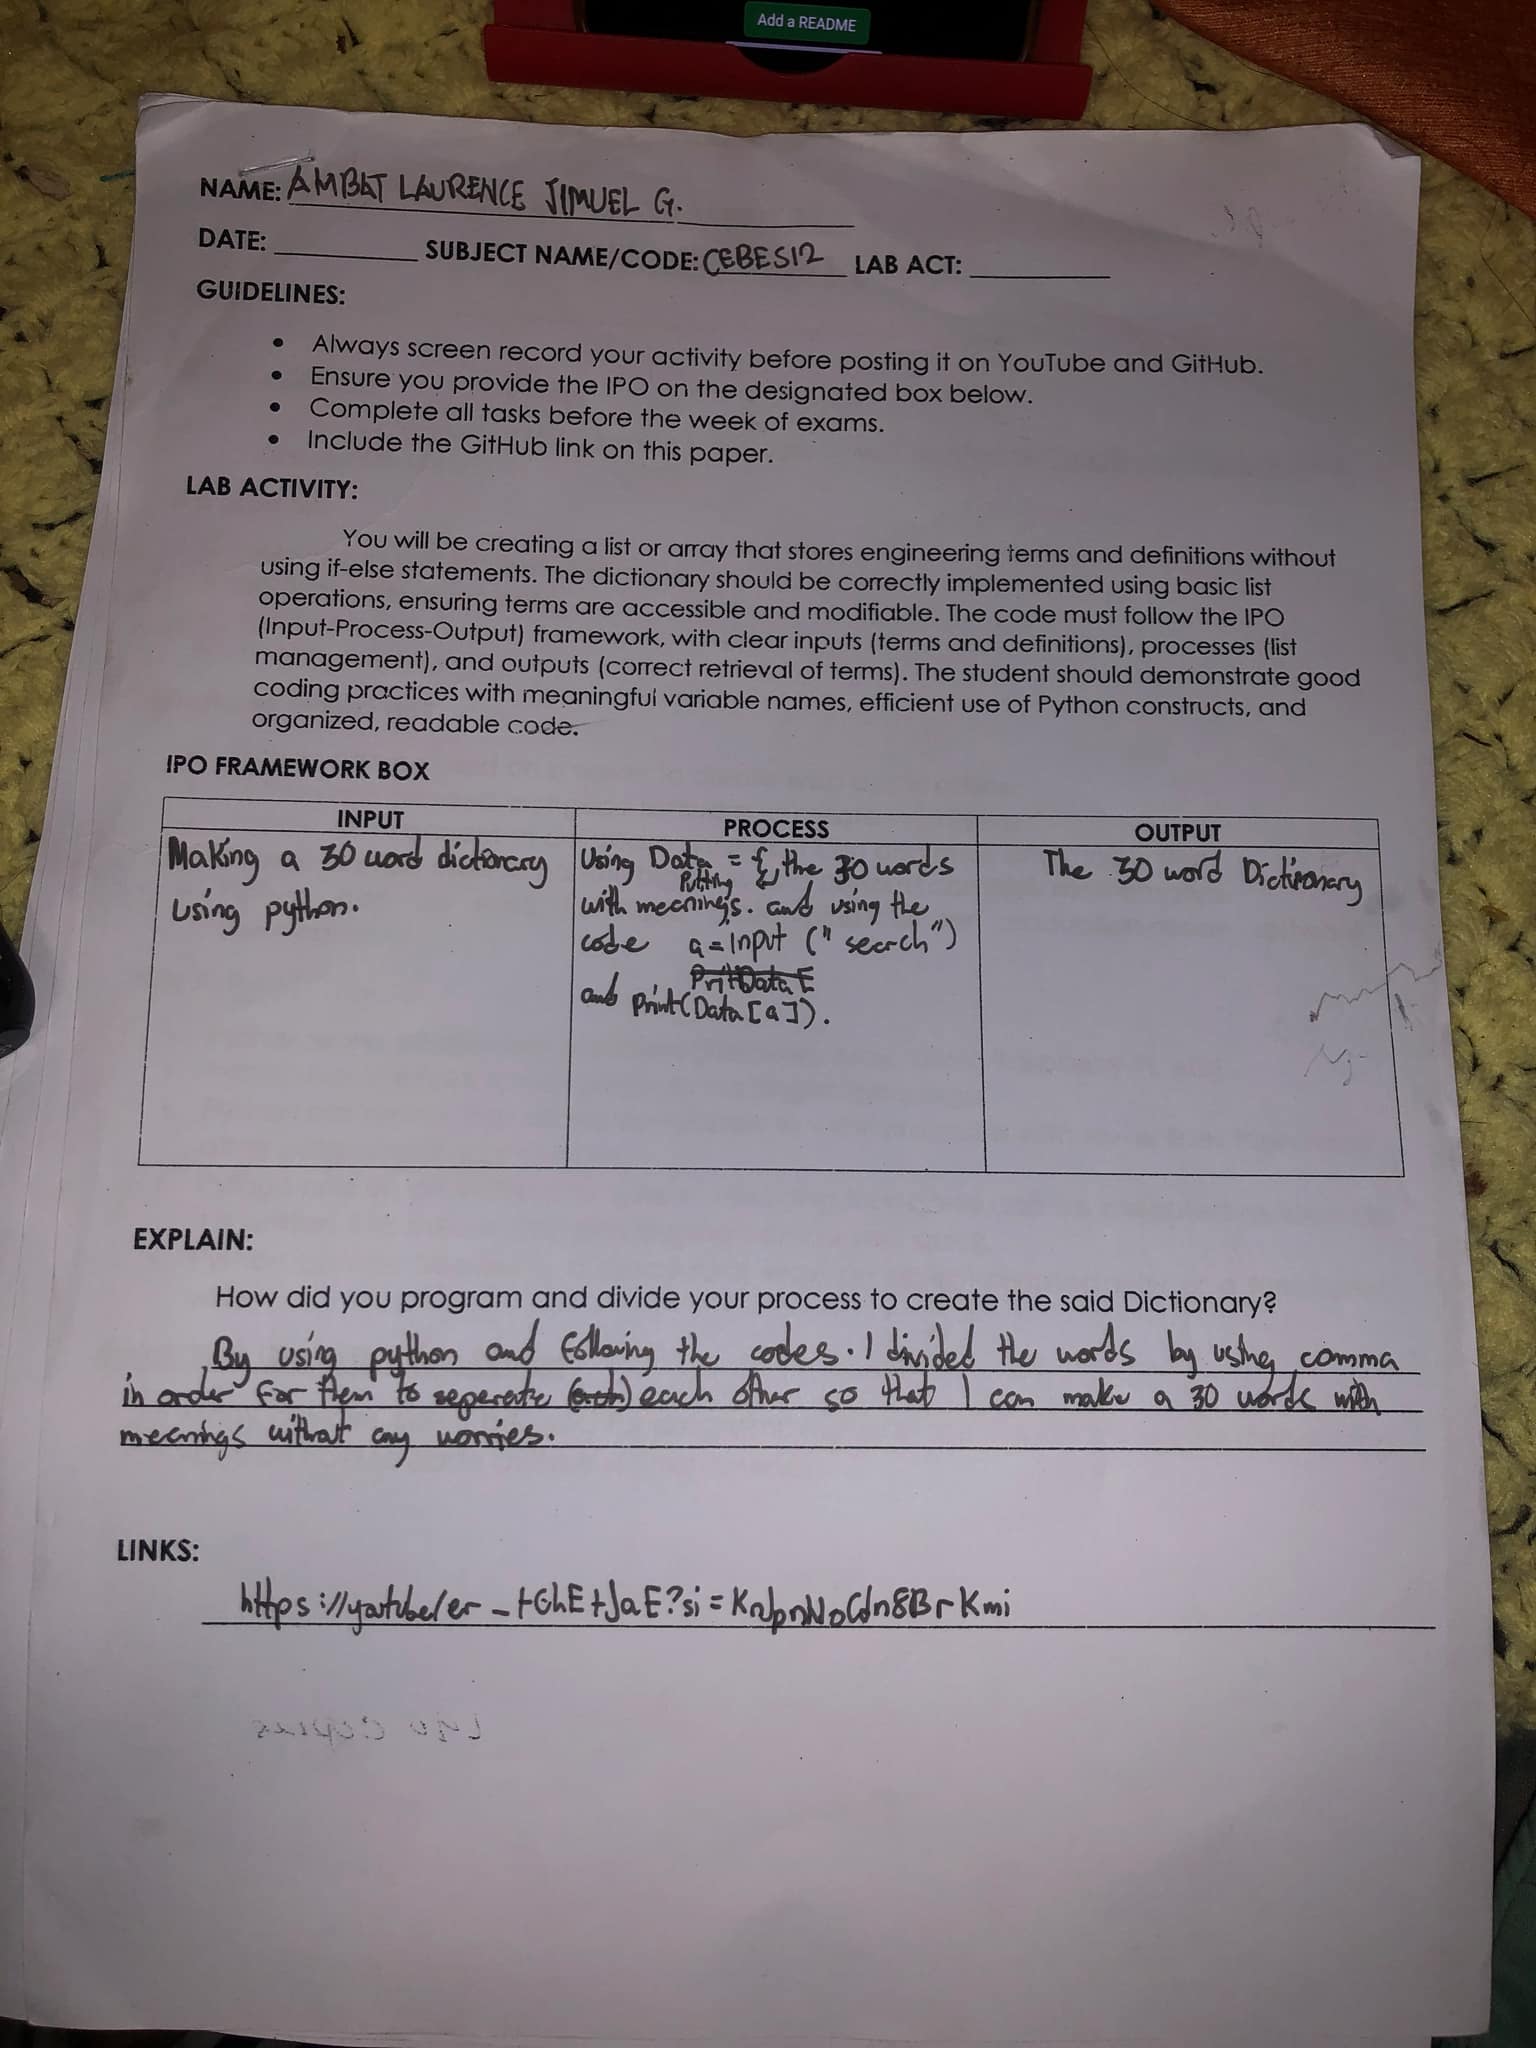 Add a README
NAME: AMBAT LAURENCE JIMUEL G.
DATE: SUBJECT NAME/CODE: CEBES12 LAB ACT:
GUIDELINES:
• Always screen record your activity before posting it on YouTube and GitHub.
• Ensure you provide the IPO on the designated box below.
• Complete all tasks before the week of exams.
• Include the GitHub link on this paper.
LAB ACTIVITY:
You will be creating a list or array that stores engineering terms and definitions without
using if-else statements. The dictionary should be correctly implemented using basic list
operations, ensuring terms are accessible and modifiable. The code must follow the IPO
(Input-Process-Output) framework, with clear inputs (terms and definitions), processes (list
management), and outputs (correct retrieval of terms). The student should demonstrate good
coding practices with meaningful variable names, efficient use of Python constructs, and
organized, readable code.
IPO FRAMEWORK BOX
INPUT
Making a 30 word dictionary
using python.
PROCESS
Using Data = {, the 30 words
Putting
with meanings. and using the
code a = input (" search")
and print(Data[a]).
OUTPUT
The 30 word Dictionary
EXPLAIN:
How did you program and divide your process to create the said Dictionary?
By using python and following the codes. I divided the words by using comma
in order for them to seperate each other so that I can make a 30 words with
meanings without any worries.
LINKS: